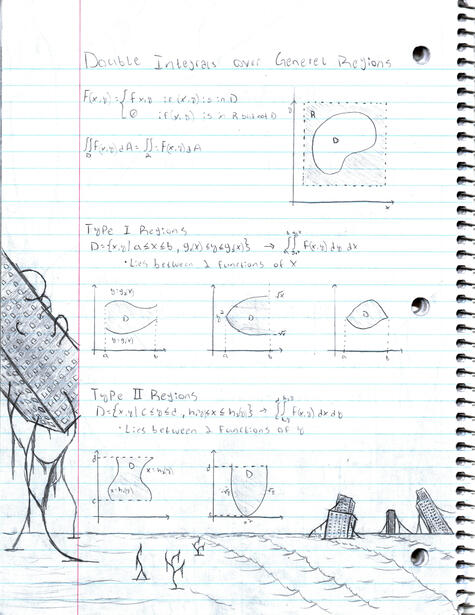 Double Integrals over General Regions
F(x,y) = { f(x,y) if (x,y) is in D
0 if (x,y) is in R but not D
∬_D f(x,y) dA = ∬_R F(x,y) dA
y
R
D
x
Type I Regions
D = {x,y | a ≤ x ≤ b, g₁(x) ≤ y ≤ g₂(x)} → ∫∫ f(x,y) dy dx
• Lies between 2 functions of x
y=g₂(x)
D
y=g₁(x)
a b
√x
D
-√x
a b
D
a b
Type II Regions
D = {x,y | c ≤ y ≤ d, h₁(y) ≤ x ≤ h₂(y)} → ∫∫ f(x,y) dx dy
• Lies between 2 functions of y
d
D
x=h₂(y)
x=h₁(y)
c
d
D
-√y √y